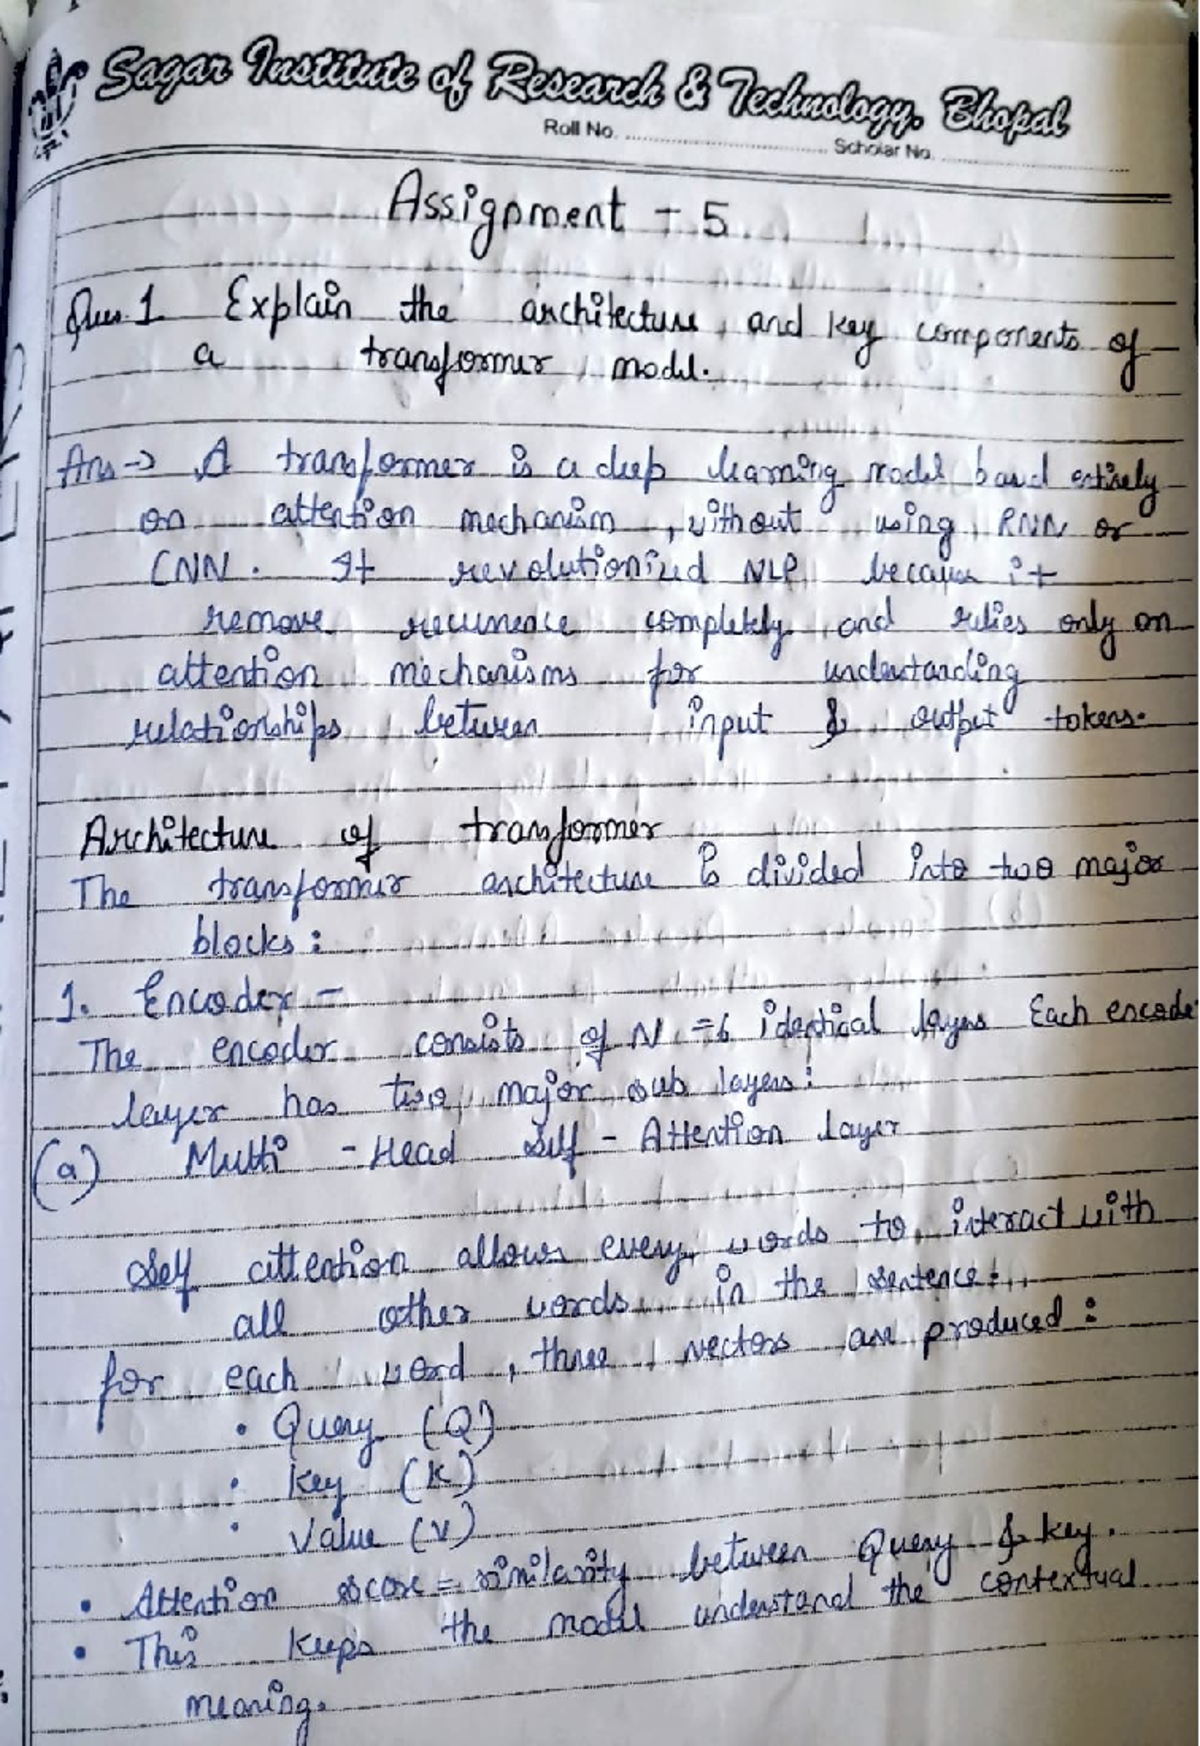 Sagar Institute of Research & Technology, Bhopal
Roll No. .......................... Scholar No. ..........................
Assignment - 5
Ques. 1 Explain the architecture, and key components of
a transformer model.
Ans → A transformer is a deep learning model based entirely
on attention mechanism, without using RNN or
CNN. It revolutionized NLP because it
remove recurrence completely and relies only on
attention mechanisms for understanding
relationships between input & output tokens.
Architecture of transformer
The transformer architecture is divided into two major
blocks:
1. Encoder -
The encoder consists of N = 6 identical layers Each encode
layer has two major sub layers:
(a) Multi - Head Self - Attention layer
Self attention allows every words to interact with
all other words in the sentence.
for each word, three vectors are produced:
• Query (Q)
• Key (K)
• Value (V)
• Attention score = similarity between Query & key.
• This keeps the model understand the contextual
meaning.